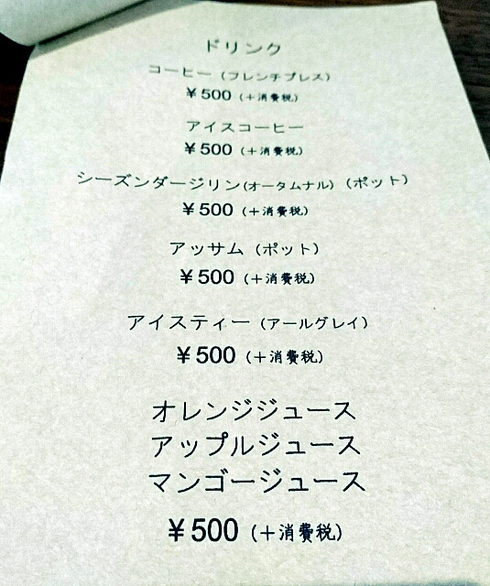 ドリンク
コーヒー (フレンチプレス)
￥500 (＋消費税)
アイスコーヒー
￥500 (＋消費税)
シーズンダージリン(オータムナル) (ポット)
￥500 (＋消費税)
アッサム (ポット)
￥500 (＋消費税)
アイスティー (アールグレイ)
￥500 (＋消費税)
オレンジジュース
アップルジュース
マンゴージュース
￥500 (＋消費税)